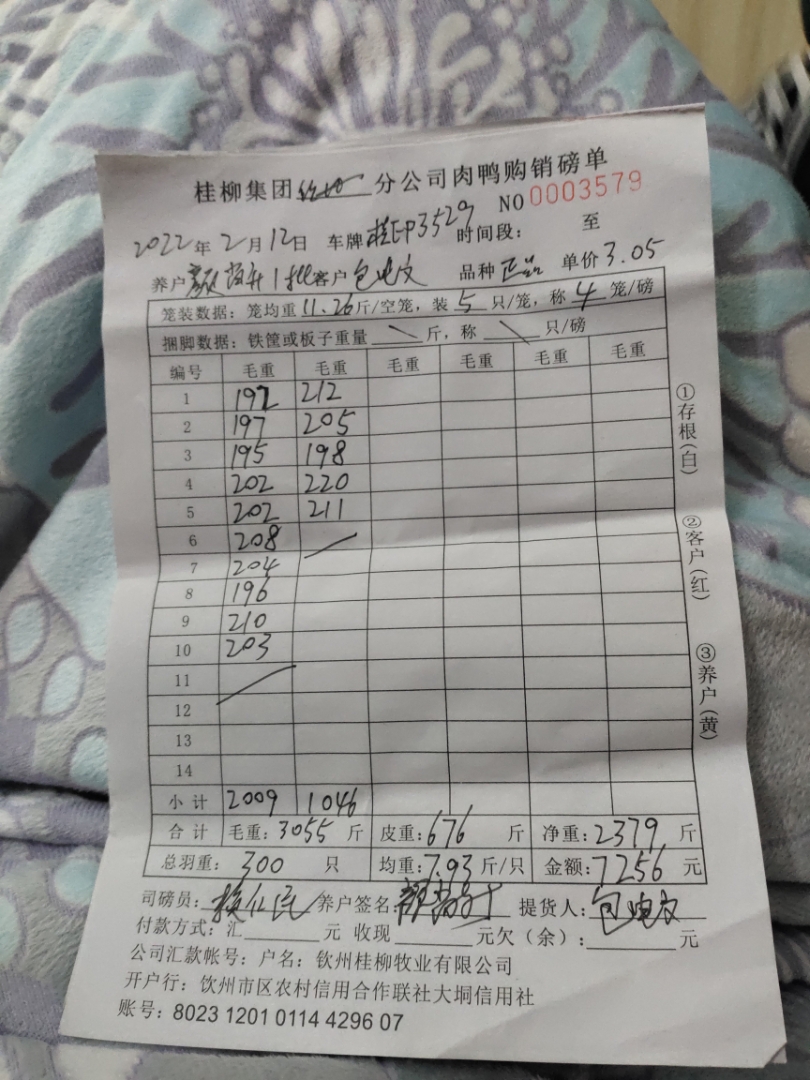 桂柳集团 分公司肉鸭购销磅单
NO 0003579
2022年2月12日 车牌 桂EP3529 时间段： 至
养户 颜 升1批客户 包 文 品种 正品 单价 3.05
笼装数据：笼均重 11.26 斤/空笼，装 5 只/笼，称 4 笼/磅
捆脚数据：铁筐或板子重量 \ 斤，称 \ 只/磅
编号 毛重 毛重 毛重 毛重 毛重 毛重
1 192 212
2 197 205
3 195 198
4 202 220
5 202 211
6 208
7 204
8 196
9 210
10 203
11
12
13
14
小计 2009 1046
合计 毛重：3055 斤 皮重：676 斤 净重：2379 斤
总羽重：300 只 均重：7.93 斤/只 金额：7256 元
司磅员： 养户签名： 提货人：包 文
付款方式：汇 元 收现 元欠（余）： 元
公司汇款帐号：户名：钦州桂柳牧业有限公司
开户行：饮州市区农村信用合作联社大垌信用社
账号：8023 1201 0114 4296 07
①存根（白）
②客户（红）
③养户（黄）